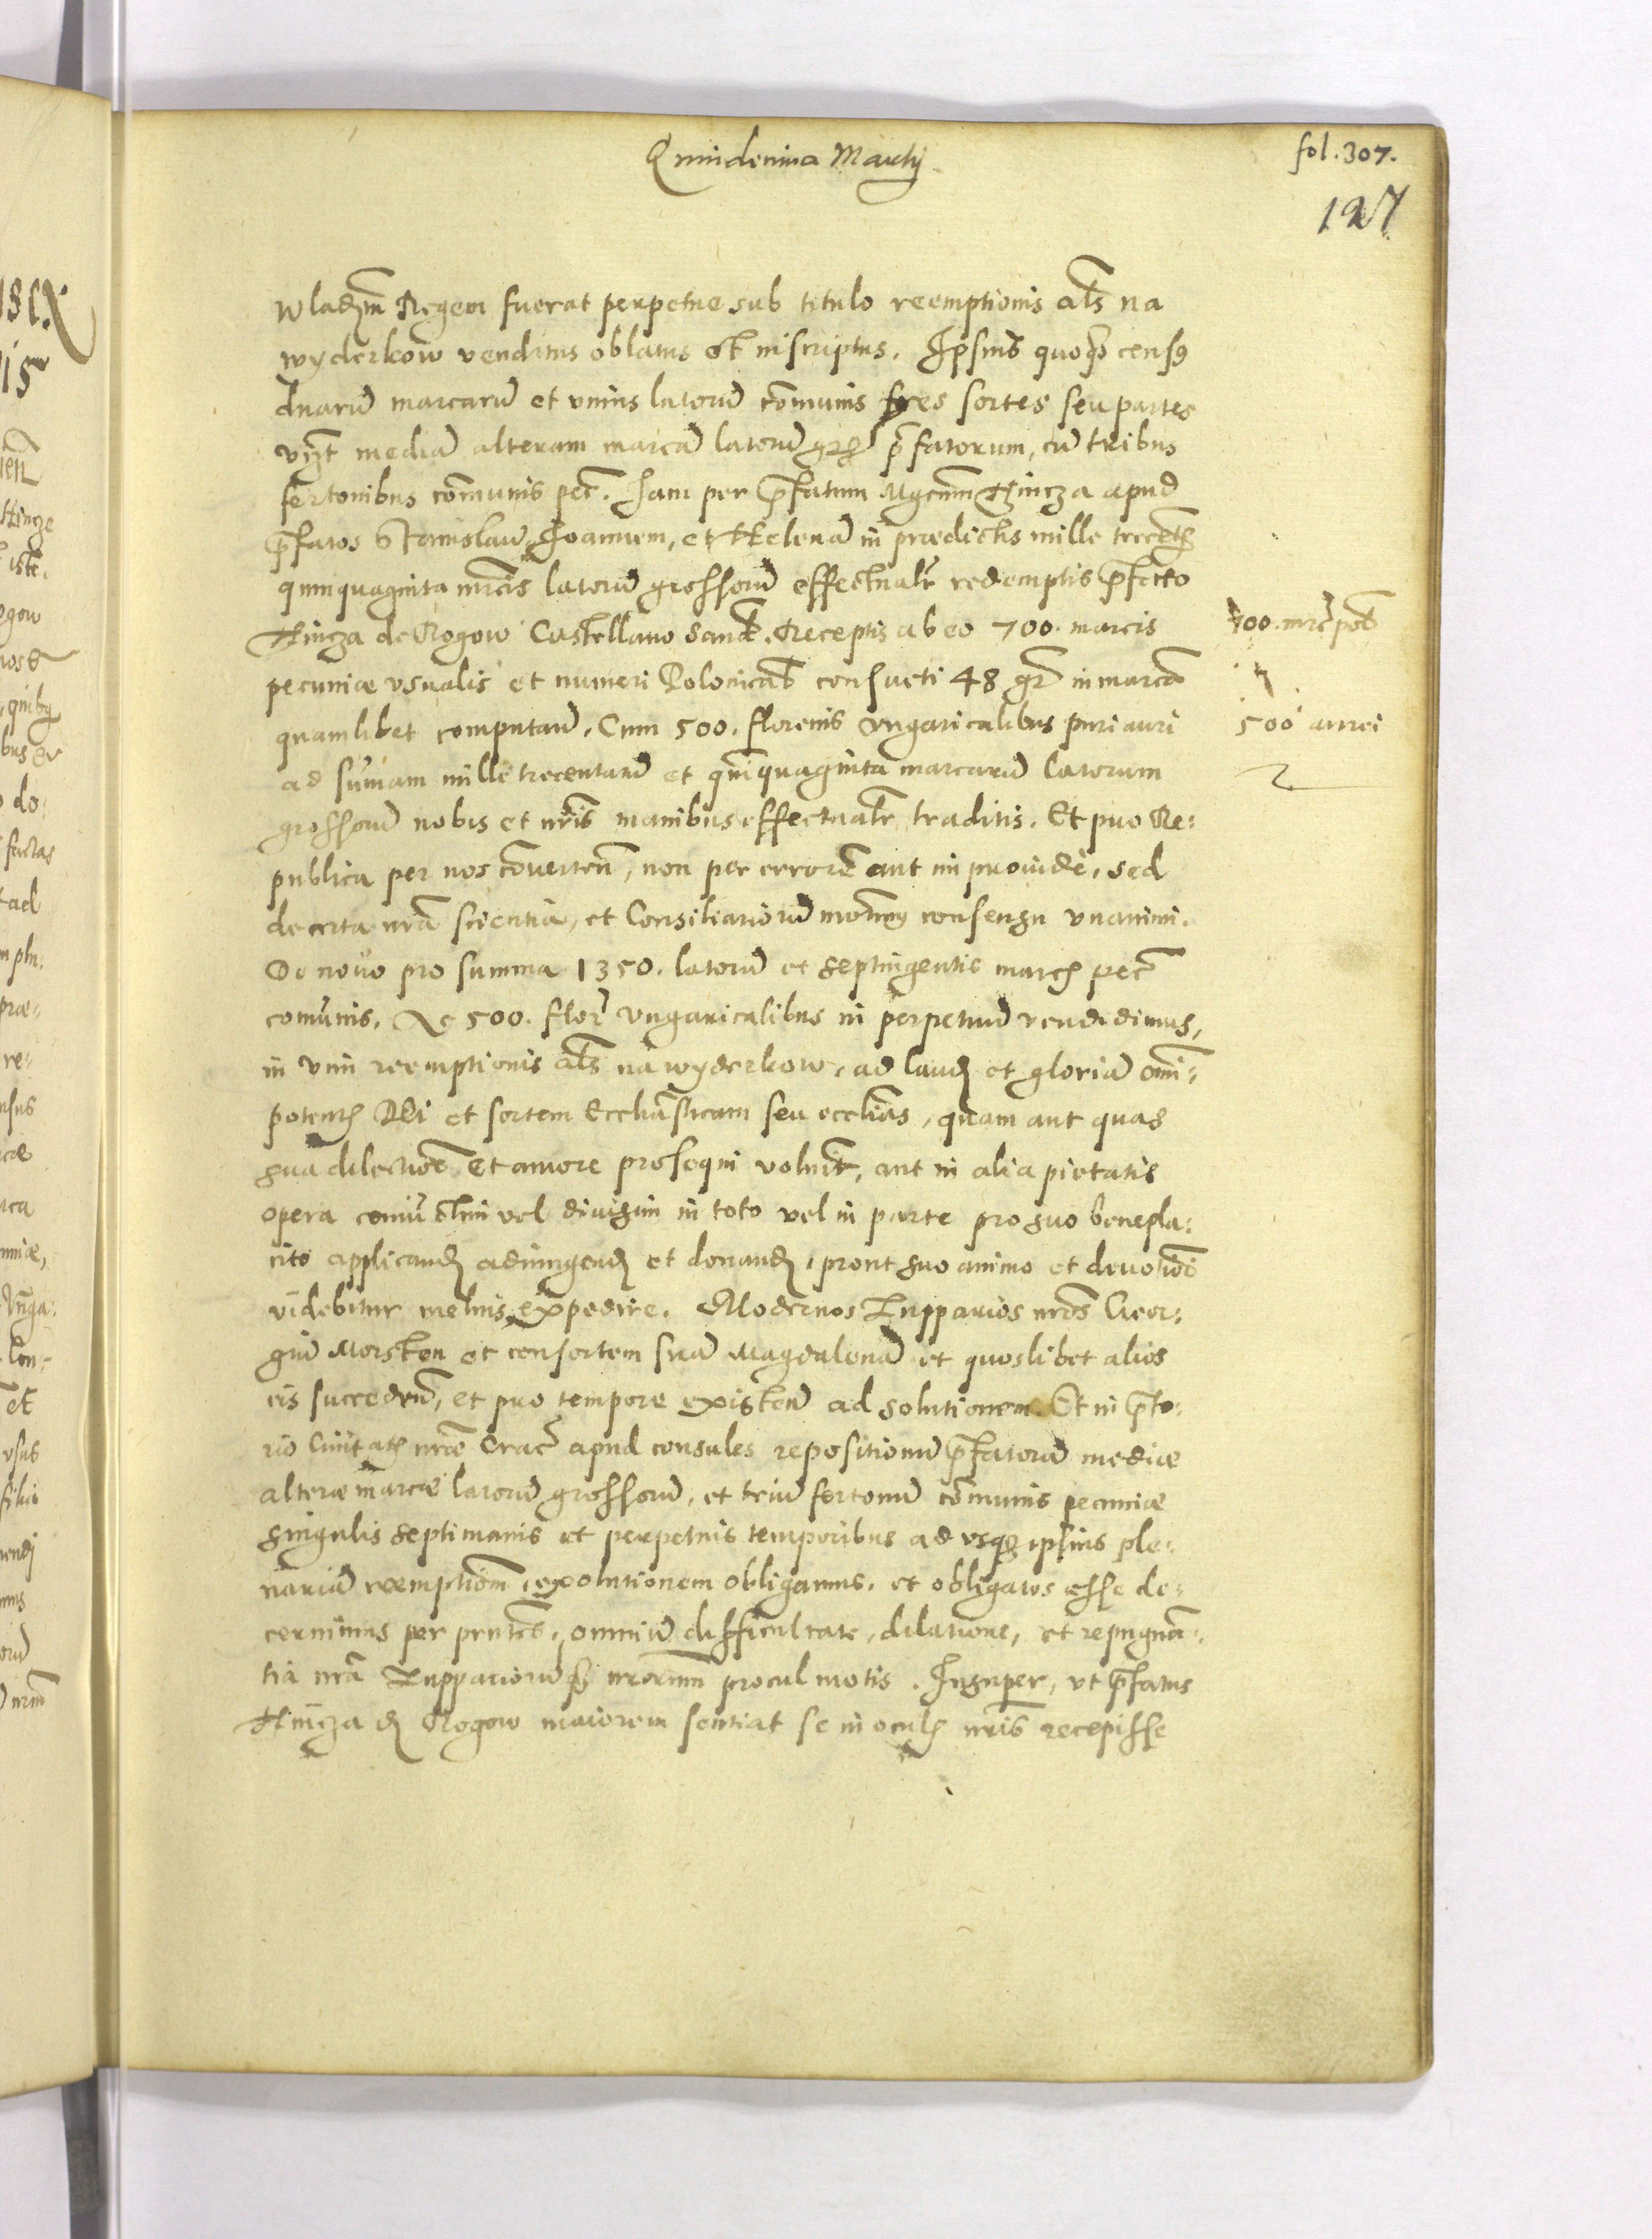 Quindenna Martij
fol. 307.
127
Wladm̃ Regem fuerat perpetue sub titulo reemptionis als̃ na
wyderkow venditus oblatus et inscriptus. Ipsius quoqꝫ censꝰ
duarũ marcarũ et vnius latorũ cõmunis tres sortes seu partes
vzt̃ mediã alteram marcã latorũ gr̃ p̃fatorum, cũ tribus
fertonibus cõmunis pec̃. Iam per p̃fatum Mgcũm Hincza apud
p̃fatos Stanislaũ, Joannem, et Helenã in prædictis mille trecẽtꝭ
quinquaginta mrcis latorũ grossorũ effectualr̃ redemptis p̃fecto
Hincza de Rogow Castellano Sand. Receptis ab eo 700. marcis
700. mrc̃ pol̃
pecuniæ vsualis et numeri Polonicał consueti 48 gr̃ in marcã
quamlibet computañ. Cum 500. florenis Vngaricalibus puri auri
500 aurei
ad sum̃am mille trecentarũ et quĩquaginta marcarũ latorum
grossorũ nobis et nr̃is manibus effectualr̃ traditis. Et pro Re:
publica per nos cõuerteñ, non per errorẽ aut improuidè, sed
de certa nr̃a scientia, et Consiliariorũ nrõrũ consensu vnanimi.
De nouo pro summa 1350. latorũ et septingentis marcꝭ pec̃
comũnis. Ac 500. flor̃ Vngaricalibus in perpetuũ vendidimus,
in vim reemptionis als̃ na wyderkow, ad laudẽ et gloriã om̃i:
potentꝭ DEi et sortem Eccliãsticam seu ecclias, quam aut quas
sua dilectiõe et amore prosequi voluerit, aut in alia pietatis
opera coniũctim vel diuisim in toto vel in parte pro suo benepla:
cito applicandꝭ adiungendꝭ et donandꝭ, prout suo animo et deuotiõi
videbitur melius expedire. Modernos Zupparios nr̃os Geor:
giũ Morsten et consortem suã Magdalenã et quoslibet alios
eis succedeñ, et pro tempore existeñ ad solutionem. Et in p̃to:
rio Ciuitatꝭ nr̃æ Crac̃ apud consules repositionũ p̃fatorũ mediæ
alteræ marcæ latorũ grossorũ, et triũ fertonũ cõmunis pecuniæ
singulis septimanis et perpetuis temporibus ad vsqꝫ ipsius ple:
nariã reemptiõm, exolutionem obligamus. et obligatos esse de:
cernimus per prñtes, omniũ difficultate, dilatione, et repugnã:
tia nr̃a Zuppariorũqꝫ nrorum procul motis. Insuper, vt p̃fatus
Hincza dꝭ Rogow maiorem sentiat se in oculꝭ nr̃is recepisse